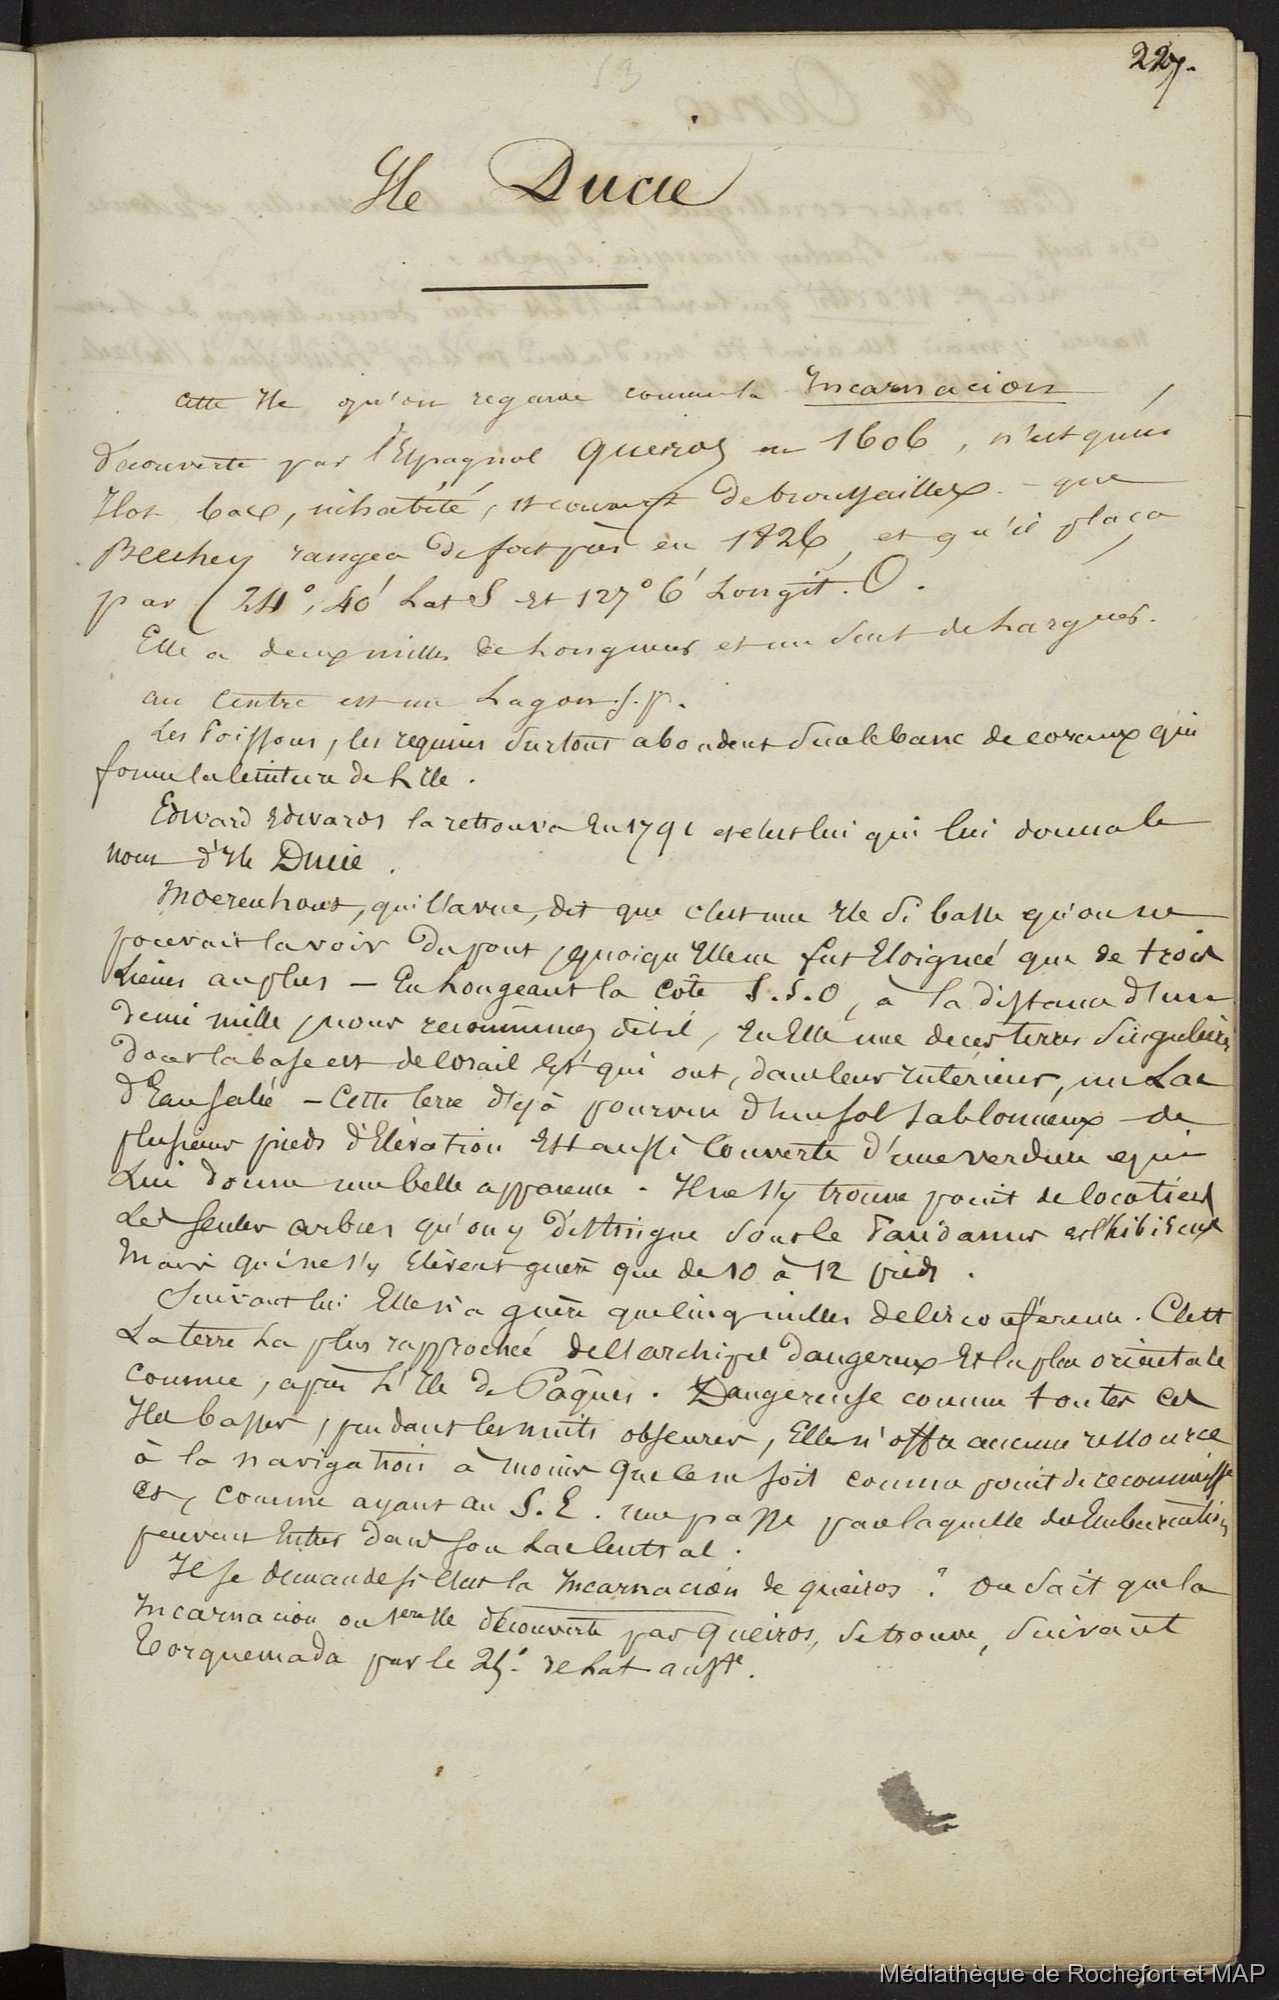 227.
Ile Ducie
Cette Ile qu'on regarde comme la Incarnacion,
découverte par l'Espagnol Queiros en 1606, n'est qu'un
Ilot bas, inhabité, et couvert de broussailles – que
Beechey rangea de fort près en 1826, et qu'il plaça
par (24°, 40' Lat S et 127° 6' Longit. O.
Elle a deux milles de Longueur et un seul de Largeur.
au Centre est un Lagon s.p.
Les Poissons, les requins surtout abondent sur le banc de coraux qui
forme la ceinture de L'Ile.
Edward Edwards la retrouva en 1791 et c'est lui qui lui donna le
nom d'Ile Ducie.
Moerenhout, qui l'a vue, dit que c'est une Ile si basse qu'on ne
pouvait la voir du pont, quoiqu'Elle ne fut Eloignée que de trois
Lieues au plus – En Longeant la Côte S.S.O, à la distance d'un
demi mille, nous reconnumes, dit il, En Elle une de ces terres singulières
dont la base est de Corail Et qui ont, dans leur intérieur, un Lac
d'Eau salée – Cette terre déjà pourvue d'un sol sablonneux de
plusieurs pieds d'Elévation Est aussi Couverte d'une verdure qui
Lui donne une belle apparence. Il ne s'y trouve point de Cocotiers
Les seuls arbres qu'on y distingue sont le Pandanus et l'hibiscus
Mais qui ne s'y Elèvent guère que de 10 à 12 pieds.
Suivant lui Elle n'a guère que cinq milles de circonférence. C'est
La terre La plus rapprochée de l'archipel dangereux Et la plus orientale
connue, après L'Ile de Pâques. Dangereuse comme toutes ces
Iles basses, pendant les nuits obscures, Elle n'offre aucune ressource
à la navigation à moins que ce ne soit comme point de reconnaiss
et, comme ayant au S.E. une passe par laquelle des Embarcations
peuvent Entrer dans son Lac Central.
Il se demande si c'est la Incarnacion de Queiros? On sait que la
Incarnacion ou 1ere Ile découverte par Queiros, se trouve, suivant
Torquemada par le 25°. de Lat austr.
Médiathèque de Rochefort et MAP